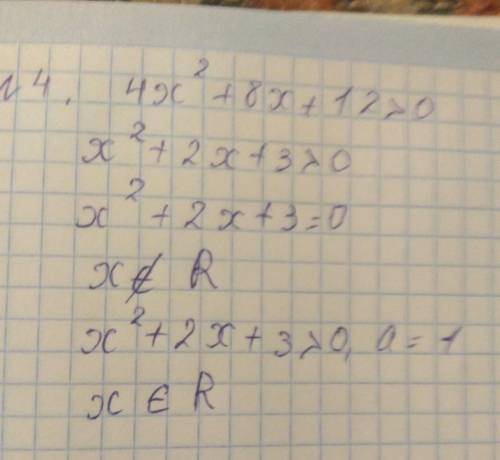 № 4. 4x² + 8x + 12 > 0
x² + 2x + 3 > 0
x² + 2x + 3 = 0
x ∉ R
x² + 2x + 3 > 0, a = 1
x ∈ R